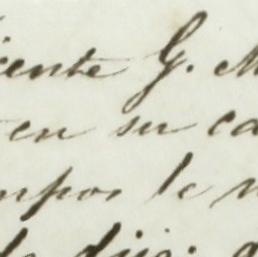 icente G. M
en su ca
mpos le
dijo: